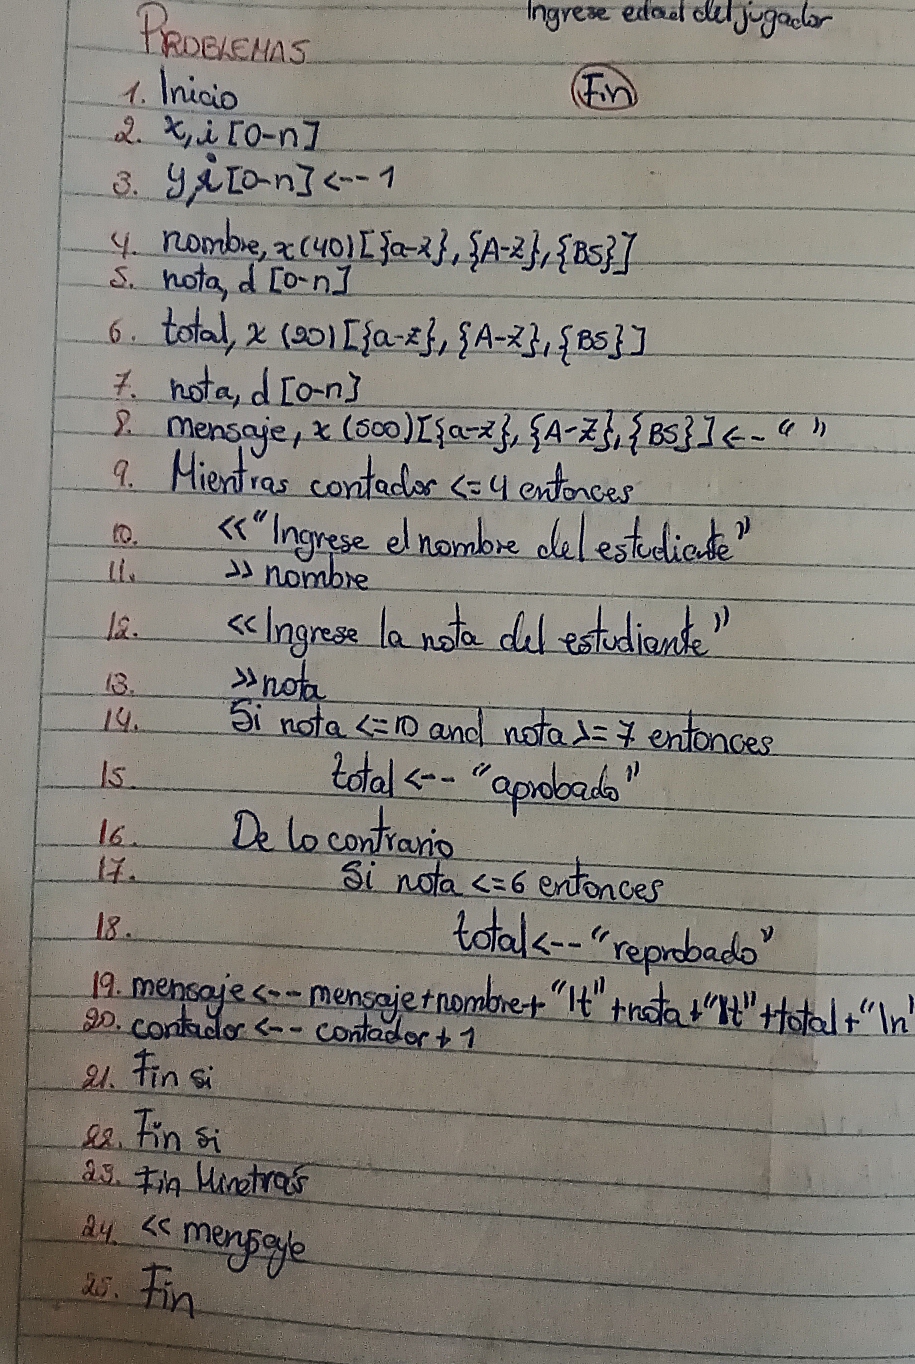 Ingrese edad del jugador
PROBLEMAS
Fin
1. Inicio
2. x, i [0-n]
3. y, i [0-n] <-- 1
4. nombre, x (40) [{a-z}, {A-Z}, {BS}]
5. nota, d [0-n]
6. total, x (20) [{a-z}, {A-Z}, {BS}]
7. nota, d [0-n]
8. mensaje, x (500) [{a-z}, {A-Z}, {BS}] <-- “ ”
9. Mientras contador <= 4 entonces
10. <<“Ingrese el nombre del estudiante”
11. >> nombre
12. <<Ingrese la nota del estudiante”
13. >>nota
14. Si nota <=10 and nota >= 7 entonces
15. total <-- “aprobado”
16. De lo contrario
17. Si nota <=6 entonces
18. total<--“reprobado”
19. mensaje<--mensaje+nombre+“\t”+nota+“\t”+total+“\n”
20. contador <-- contador + 1
21. Fin si
22. Fin si
23. Fin Minetras
24. << mensaje
25. Fin